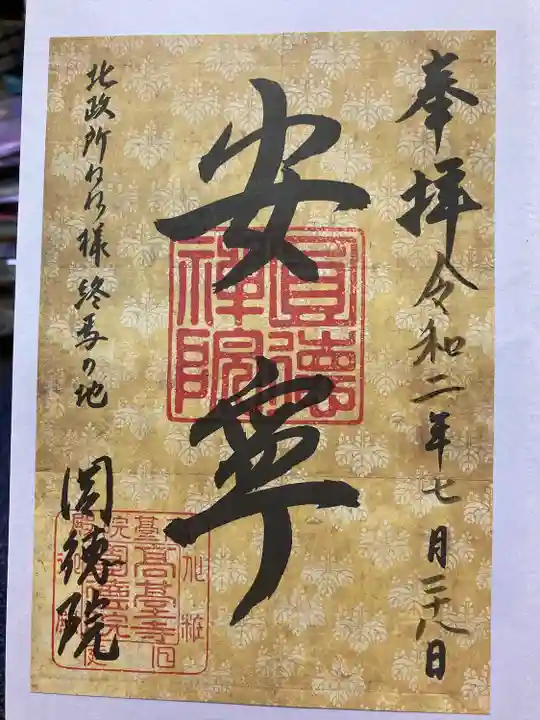 奉拝令和二年七月二十八日
安寧
圓德
禪院
北政所ねね様終焉の地
圓徳院
高臺寺